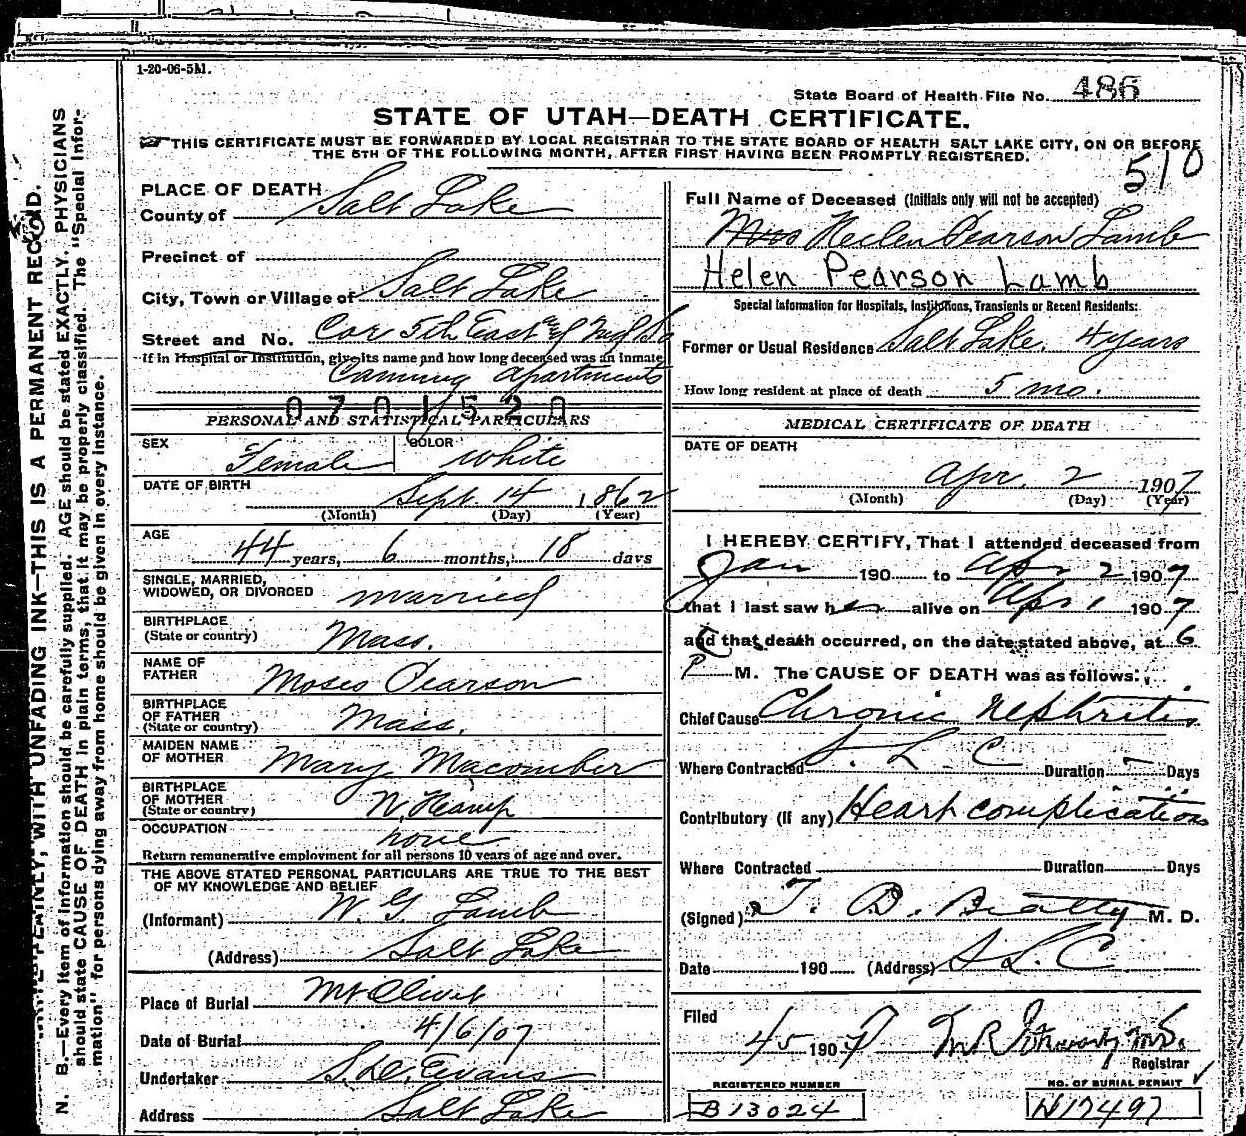 1-20-06-5M.
State Board of Health File No. 486
STATE OF UTAH—DEATH CERTIFICATE.
THIS CERTIFICATE MUST BE FORWARDED BY LOCAL REGISTRAR TO THE STATE BOARD OF HEALTH SALT LAKE CITY, ON OR BEFORE
THE 5TH OF THE FOLLOWING MONTH, AFTER FIRST HAVING BEEN PROMPTLY REGISTERED.
510
PLACE OF DEATH
County of Salt Lake
Precinct of
City, Town or Village of Salt Lake
Street and No. Cor 5th East
if in Hospital or Institution, give its name and how long deceased was an inmate
apartments
0701520
PERSONAL AND STATISTICAL PARTICULARS
SEX Female COLOR White
DATE OF BIRTH Sept. 14 1862
(Month) (Day) (Year)
AGE 44 years, 6 months, 18 days
SINGLE, MARRIED,
WIDOWED, OR DIVORCED married
BIRTHPLACE
(State or country) Mass.
NAME OF
FATHER Moses Pearson
BIRTHPLACE
OF FATHER
(State or country) Mass.
MAIDEN NAME
OF MOTHER Mary Macomber
BIRTHPLACE
OF MOTHER
(State or country) N. Hamp
OCCUPATION none
Return remunerative employment for all persons 10 years of age and over.
THE ABOVE STATED PERSONAL PARTICULARS ARE TRUE TO THE BEST
OF MY KNOWLEDGE AND BELIEF
(Informant) W. G. Lamb
(Address) Salt Lake
Place of Burial Mt Olivet
Date of Burial 4/6/07
Undertaker S. D. Evans
Address Salt Lake
Full Name of Deceased (Initials only will not be accepted)
Mrs Helen Pearson Lamb
Helen Pearson Lamb
Special Information for Hospitals, Institutions, Transients or Recent Residents:
Former or Usual Residence Salt Lake. 4 years
How long resident at place of death 5 mo.
MEDICAL CERTIFICATE OF DEATH
DATE OF DEATH
Apr. 2 1907
(Month) (Day) (Year)
I HEREBY CERTIFY, That I attended deceased from
Jan 190 to Apr 2 1907
that I last saw her alive on Apr 1 1907
and that death occurred, on the date stated above, at 6
P M. The CAUSE OF DEATH was as follows:
Chief Cause Chronic Nephritis
Where Contracted S. L. C Duration Days
Contributory (if any) Heart complications
Where Contracted Duration Days
(Signed) T. B. Beatty M. D.
Date 190 (Address) S L. C
Filed
4 5 1907 M.D.
Registrar
REGISTERED NUMBER
B13024
NO. OF BURIAL PERMIT
N17497
WRITE PLAINLY, WITH UNFADING INK—THIS IS A PERMANENT RECORD.
N. B.—Every item of information should be carefully supplied. AGE should be stated EXACTLY. PHYSICIANS
should state CAUSE OF DEATH in plain terms, that it may be properly classified. The "Special Infor-
mation" for persons dying away from home should be given in every instance.